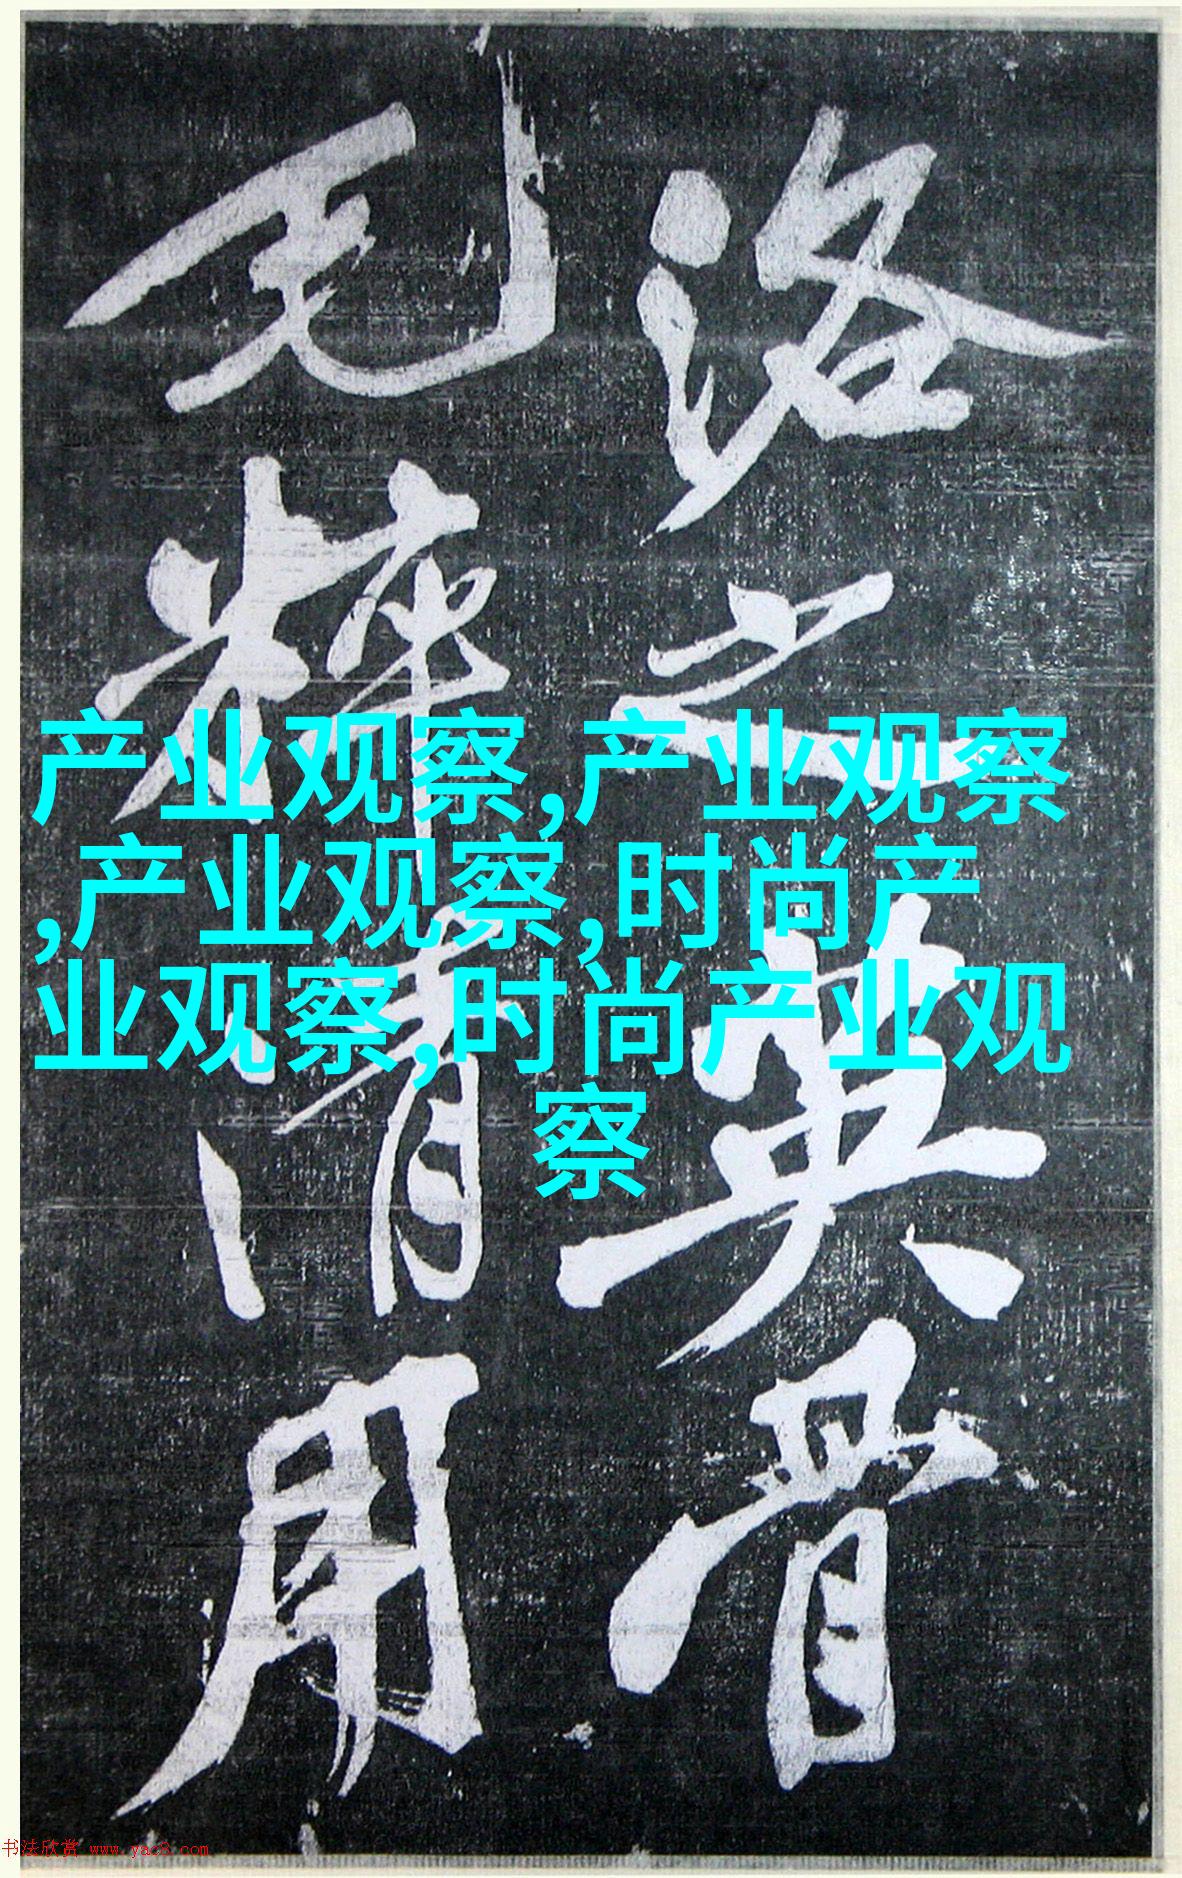 洛之英骨
毛粹清用
产业观察,产业观察
,产业观察,时尚产
业观察,时尚产业观
察
书法欣赏 www.yac8.com